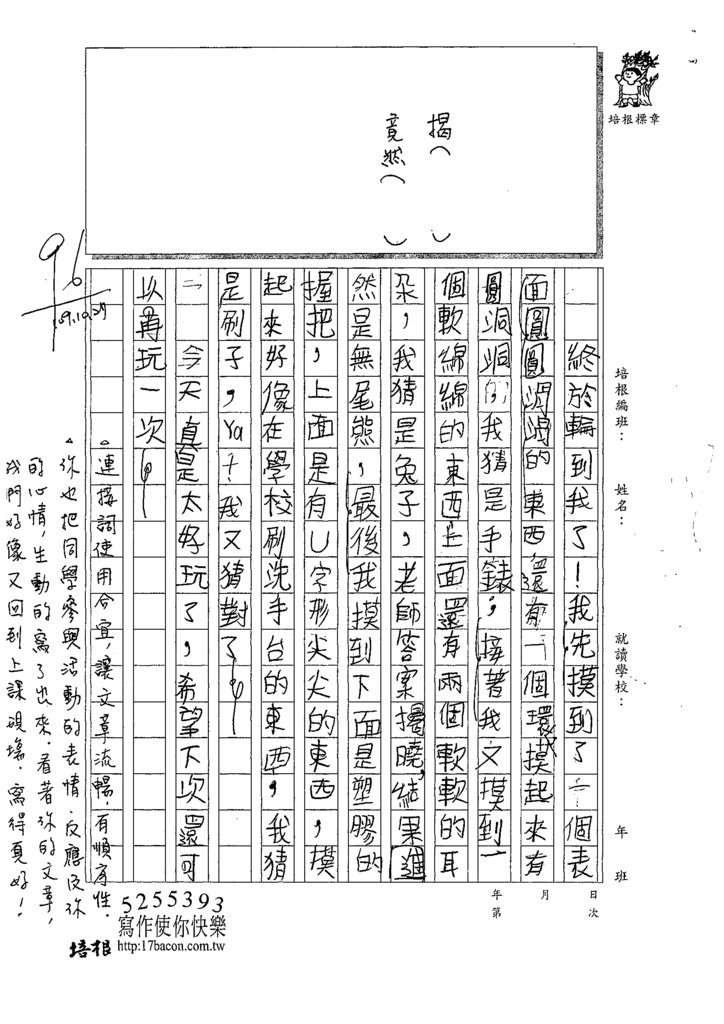 培根標章
揭（　）
竟然（　）
培根編班：　姓名：　就讀學校：　年　班
年　月　日
第　次
終於輪到我了！我先摸到了一個表
面圓圓潤潤的東西，還有一個環，摸起來有
圓洞洞的，我猜是手錶；接著我又摸到一
個軟綿綿的東西上面還有兩個軟軟的耳
朵，我猜是兔子，老師答案揭曉，結果進
然是無尾熊，最後我摸到下面是塑膠的
握把，上面是有U字形尖尖的東西，摸
起來好像在學校刷洗手台的東西，我猜
是刷子，Ya！我又猜對了。
今天真是太好玩了，希望下次還可
以再玩一次。
96
109.10.29
。連接詞使用合宜，讓文章流暢，有順序性。
。你也把同學參與活動的表情、反應及你
的心情，生動的寫了出來，看著你的文章，
我們好像又回到上課現場，寫得真好！
5255393
寫作使你快樂
培根 http:17bacon.com.tw